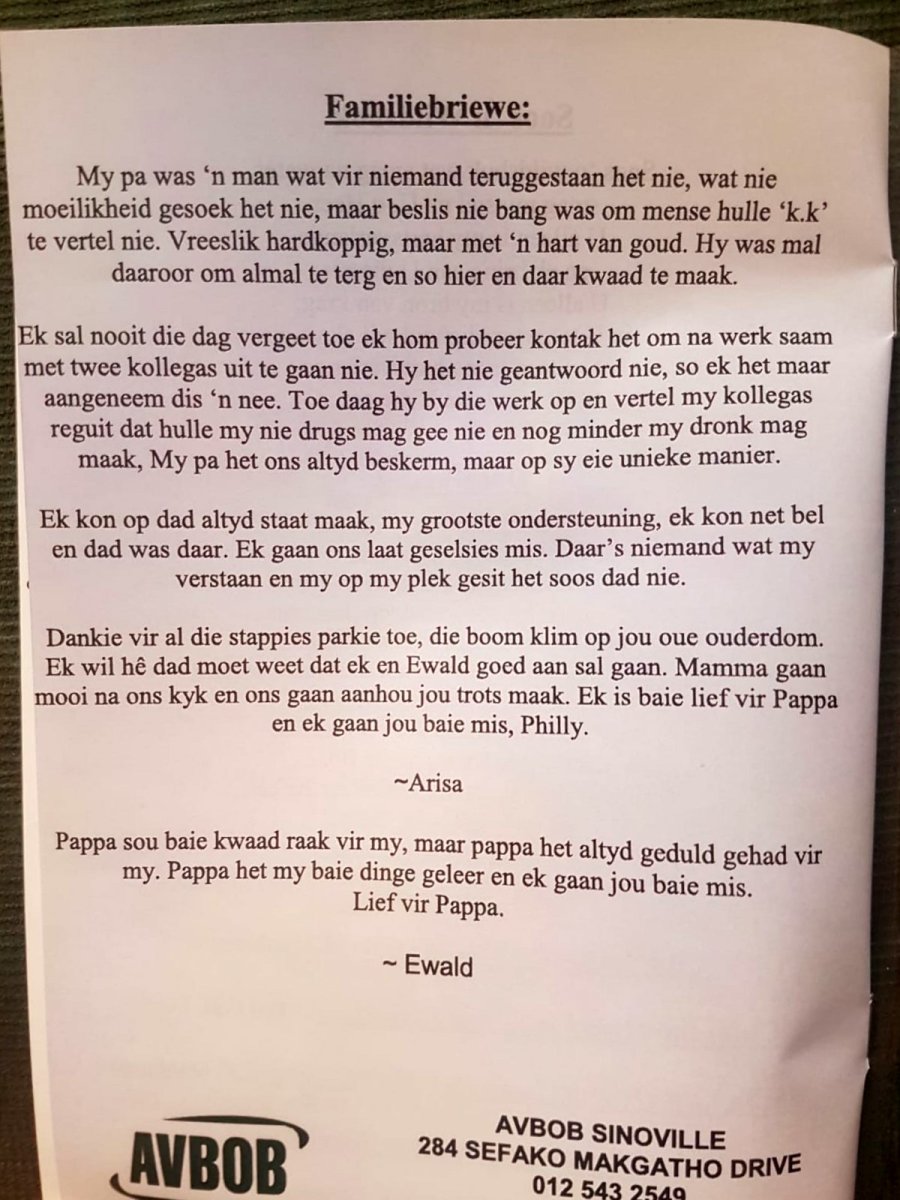 Familiebriewe:
My pa was ‘n man wat vir niemand teruggestaan het nie, wat nie
moeilikheid gesoek het nie, maar beslis nie bang was om mense hulle ‘k.k’
te vertel nie. Vreeslik hardkoppig, maar met ‘n hart van goud. Hy was mal
daaroor om almal te terg en so hier en daar kwaad te maak.
Ek sal nooit die dag vergeet toe ek hom probeer kontak het om na werk saam
met twee kollegas uit te gaan nie. Hy het nie geantwoord nie, so ek het maar
aangeneem dis ‘n nee. Toe daag hy by die werk op en vertel my kollegas
reguit dat hulle my nie drugs mag gee nie en nog minder my dronk mag
maak, My pa het ons altyd beskerm, maar op sy eie unieke manier.
Ek kon op dad altyd staat maak, my grootste ondersteuning, ek kon net bel
en dad was daar. Ek gaan ons laat geselsies mis. Daar’s niemand wat my
verstaan en my op my plek gesit het soos dad nie.
Dankie vir al die stappies parkie toe, die boom klim op jou oue ouderdom.
Ek wil hê dad moet weet dat ek en Ewald goed aan sal gaan. Mamma gaan
mooi na ons kyk en ons gaan aanhou jou trots maak. Ek is baie lief vir Pappa
en ek gaan jou baie mis, Philly.
~Arisa
Pappa sou baie kwaad raak vir my, maar pappa het altyd geduld gehad vir
my. Pappa het my baie dinge geleer en ek gaan jou baie mis.
Lief vir Pappa.
~ Ewald
AVBOB
AVBOB SINOVILLE
284 SEFAKO MAKGATHO DRIVE
012 543 2549